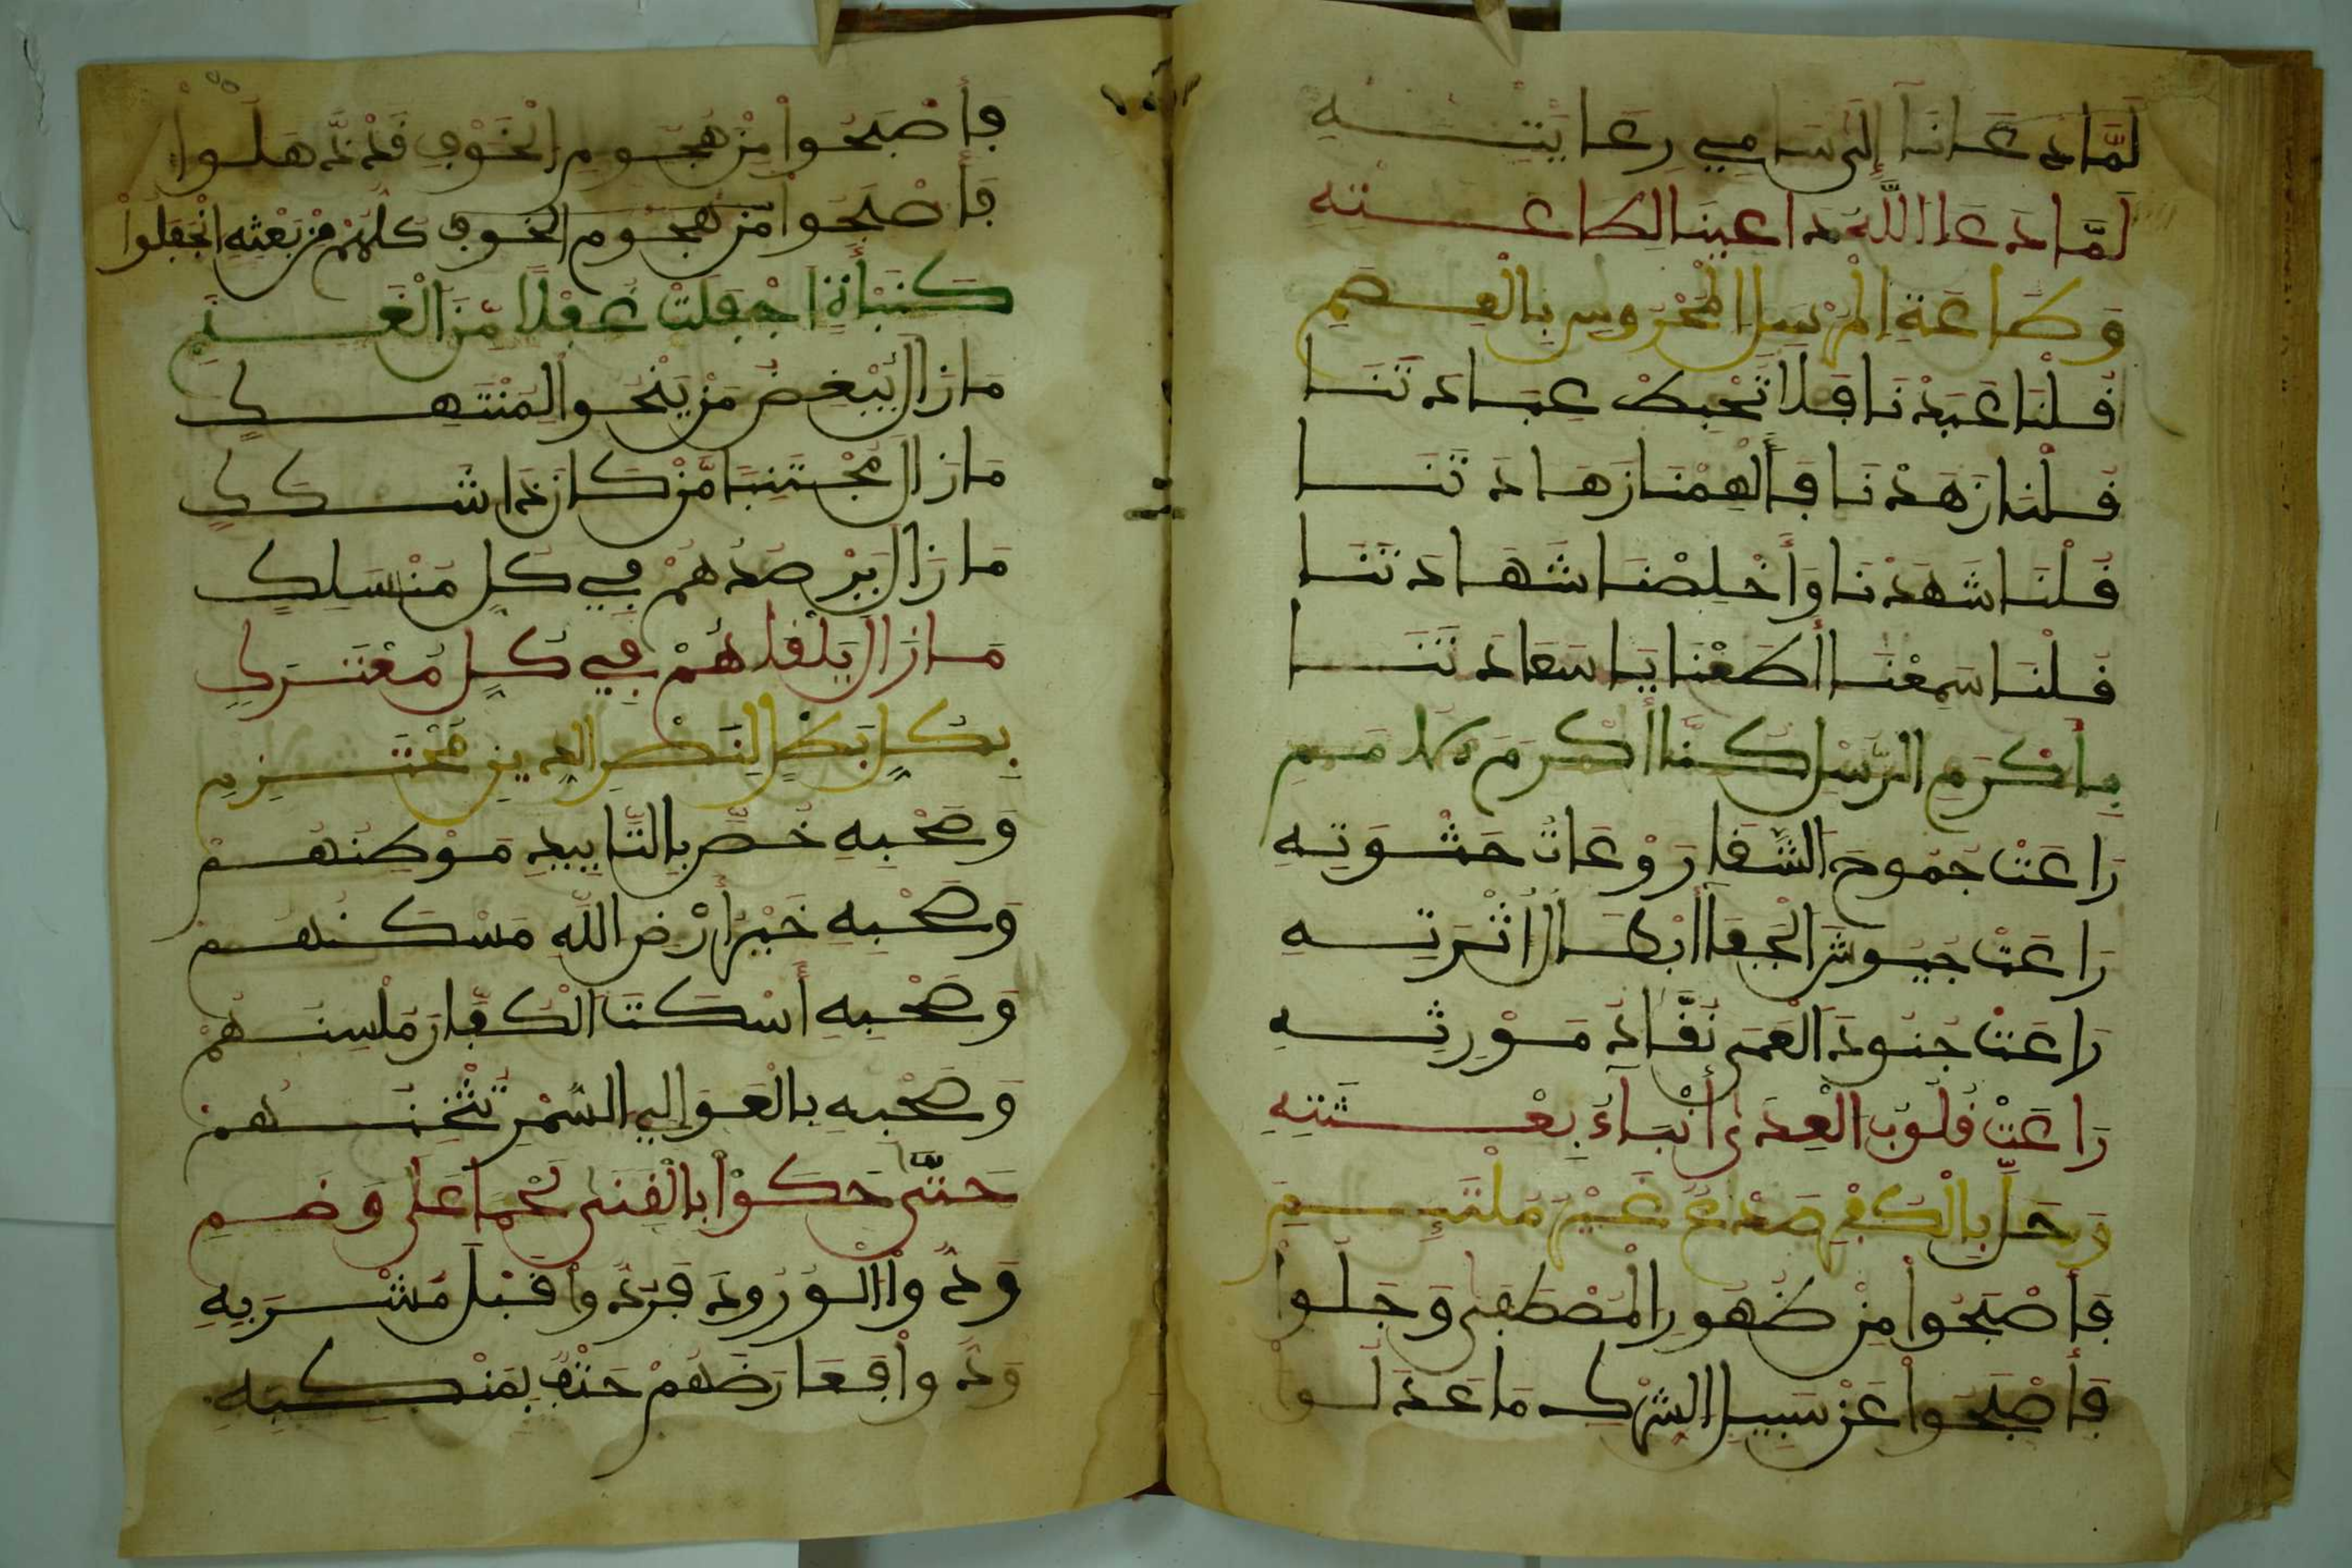 لَمَّا دَعَانَا إِلَى سَامِي رِعَايَتِهِ
لَمَّا دَعَا اللَّهُ دَاعِينَا لِطَاعَتِهِ
وَطَاعَةِ الْمُرْسَلِ الْمَحْرُوسِ بِالْعِصَمِ
قُلْنَا عَبَدْنَا فَلَا تُحْبِطْ عِبَادَتَنَا
قُلْنَا زَهَدْنَا فَأَلْهِمْنَا زَهَادَتَنَا
قُلْنَا شَهِدْنَا وَأَخْلِصْنَا شَهَادَتَنَا
قُلْنَا سَمِعْنَا أَطَعْنَا يَا سَعَادَتَنَا
بِأَكْرَمِ الرُّسْلِ كُنَّا أَكْرَمَ الأُمَمِ
رَاعَتْ جُمُوحَ الشَّقَا رَوْعَاتُ حَشْوَتِهِ
رَاعَتْ جُيُوشَ الْجَفَا أَبْطَالُ أُثْرَتِهِ
رَاعَتْ جُنُودَ الْعَمَى نُقَّادُ مَوْرِثِهِ
رَاعَتْ قُلُوبَ الْعِدَى أَنْبَاءُ بِعْثَتِهِ
وَحَلَّ بِالْكُفْرِ صَدْعٌ غَيْرُ مُلْتَئِمِ
فَأَصْبَحُوا مِنْ ظُهُورِ الْمُصْطَفَى وَجِلُوا
فَأَصْبَحُوا عَنْ سَبِيلِ الشِّرْكِ مَا عَدَلُوا
فَأَصْبَحُوا مِنْ هُجُومِ الْخَوْفِ قَدْ ذَهَلُوا
فَأَصْبَحُوا مِنْ هُجُومِ الْخَوْفِ كُلُّهُمْ مِنْ بَعْثِهِ انْجَفَلُوا
كَنَبْأَةٍ أَجْفَلَتْ غُفْلًا مِنَ الْغَنَمِ
مَا زَالَ يُبْغِضُ مَنْ يَنْحُو لِمُنْتَهِكِ
مَا زَالَ مُجْتَنِبًا مَنْ كَانَ ذَا شَكَكِ
مَا زَالَ يَرْصُدُهُمْ فِي كُلِّ مُنْسَلِكِ
مَا زَالَ يَلْقَاهُمْ فِي كُلِّ مُعْتَرَكِ
بِكُلِّ بَطَلٍ لِنَصْرِ الدِّينِ مُحْتَزِمِ
وَصَحْبِهِ خُصَّ بِالتَّأْيِيدِ مَوْطِنُهُمْ
وَصَحْبِهِ خَيْرُ أَرْضِ اللَّهِ مَسْكَنُهُمْ
وَصَحْبِهِ أَسْكَتَ الْكُفَّارَ مُلْسِنُهُمْ
وَصَحْبِهِ بِالْعَوَالِي السُّمْرِ تُثْخِنُهُمْ
حَتَّى حَكَوْا بِالْقَنَى لَحْمًا عَلَى وَضَمِ
وَدُّوا الْوُرُودَ فَرُدُّوا قَبْلَ مَشْرَبِهِ
وَدُّوا فَعَارَضَهُمْ حَتْفٌ بِمَنْكِبِهِ